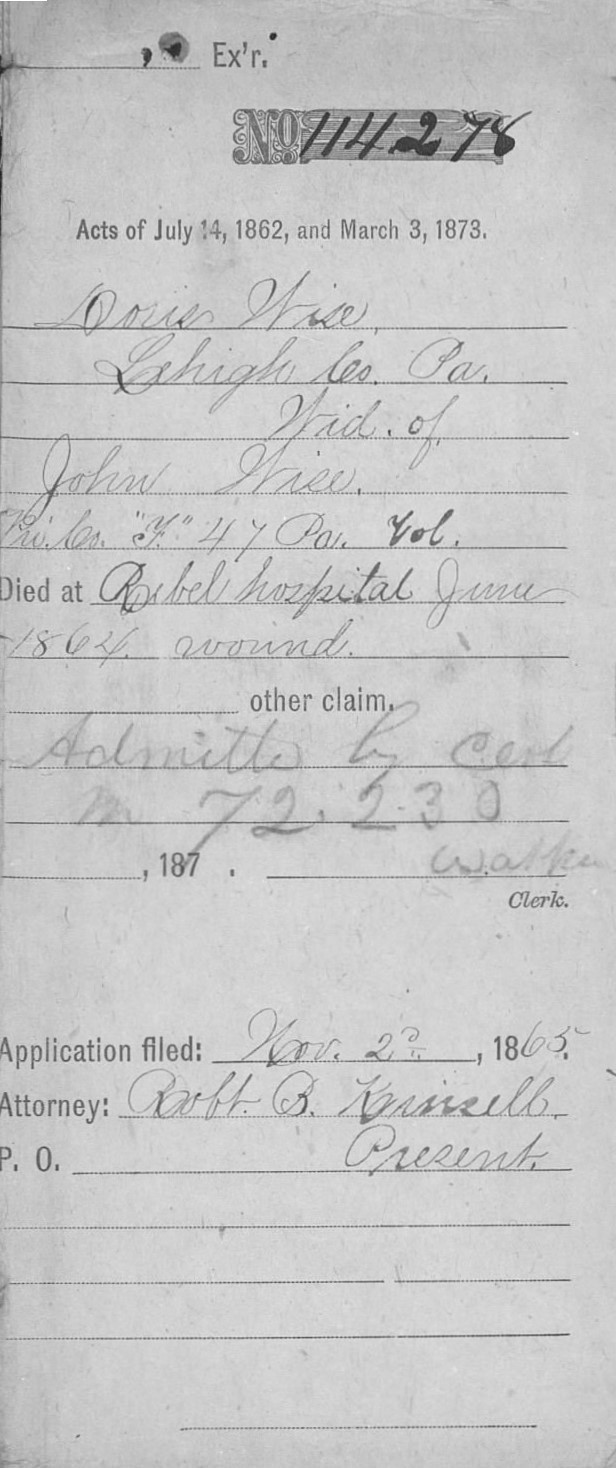 , Ex'r.
No 114278
Acts of July 14, 1862, and March 3, 1873.
Wise,
Lehigh Co. Pa.
Wid. of
John Wise.
Pri. Co. "F." 47 Pa. Vol.
Died at Rebel hospital June
1864. wound.
other claim.
Admitted by Cert
72.230
, 187 .
Clerk.
Application filed: Nov. 2d , 1865.
Attorney: Robt. B.
P. O. Present.